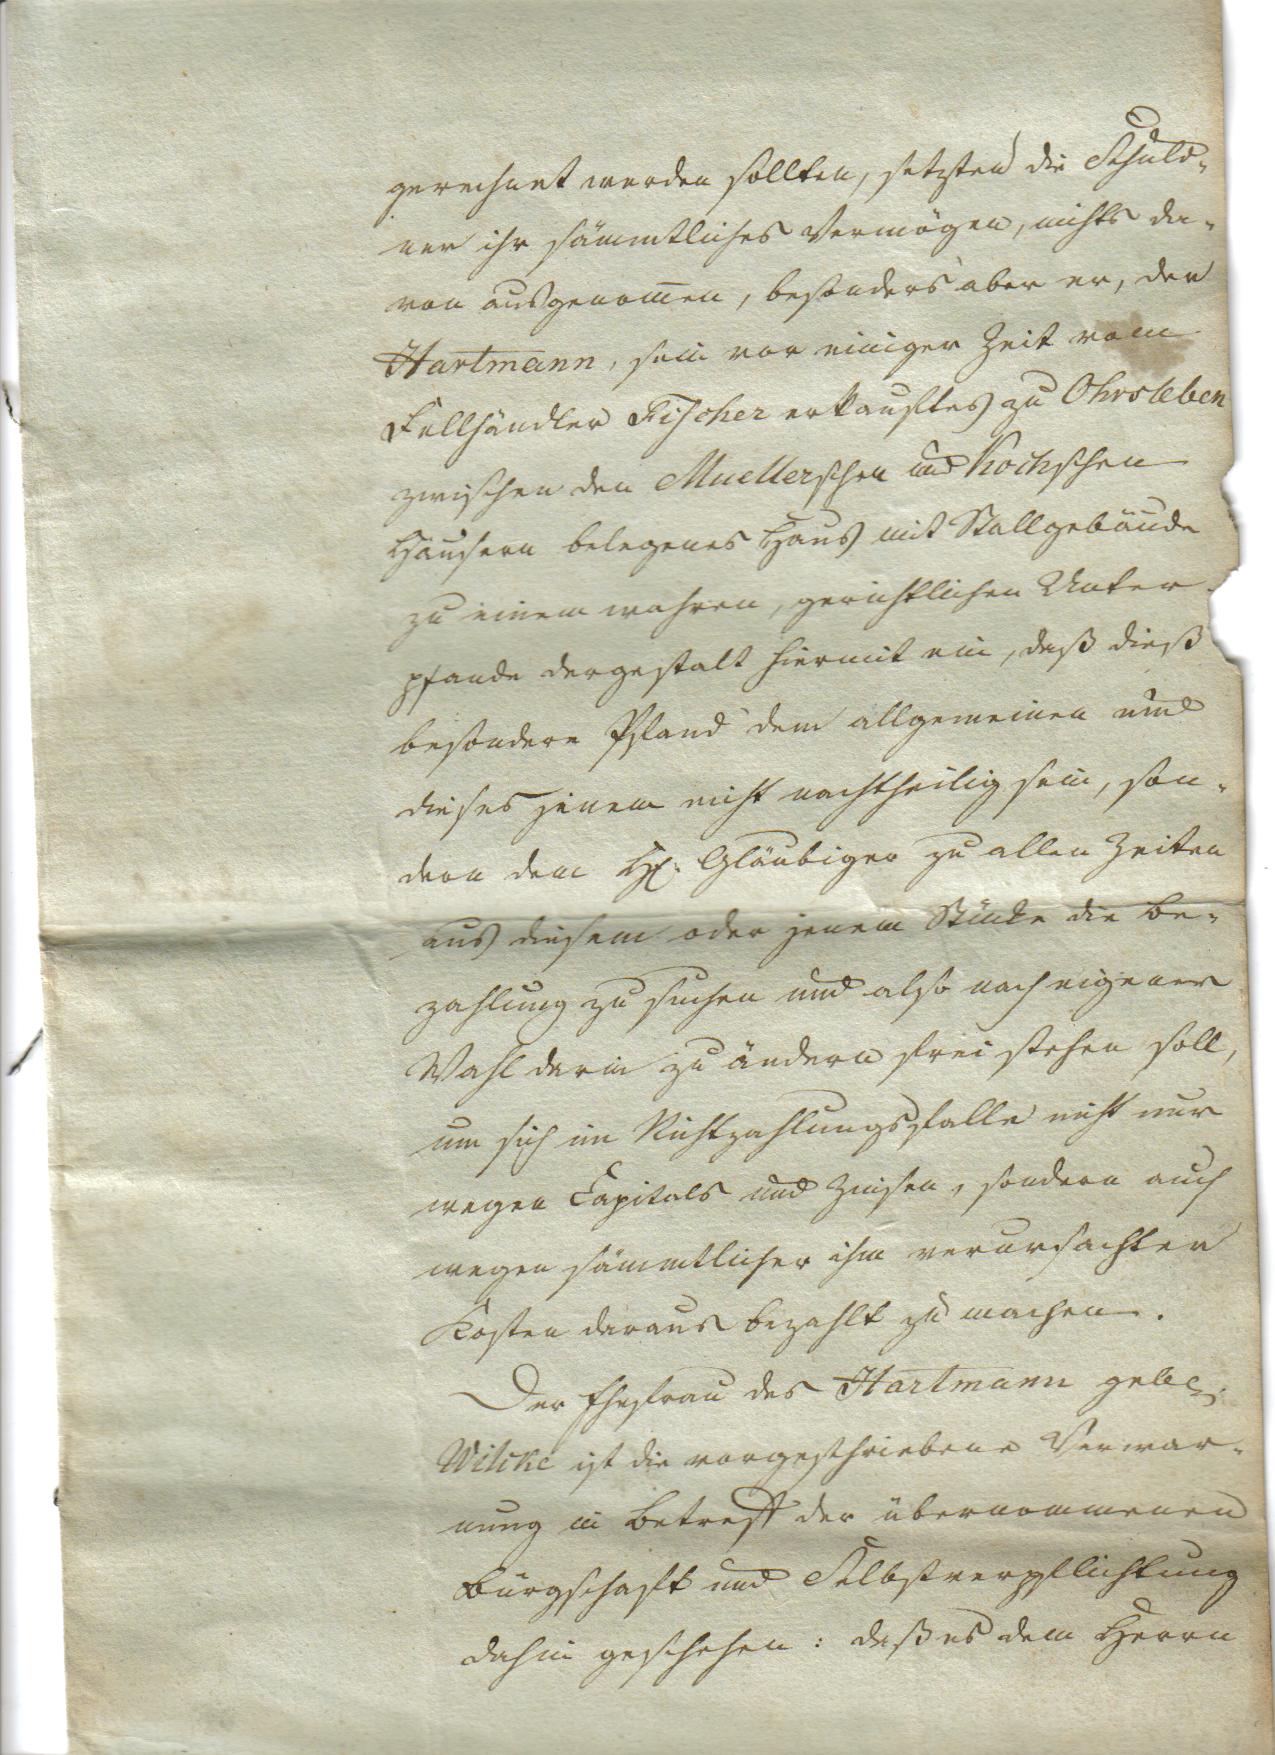 gerechnet werden sollten, setzten die Schuld-
ner ihr sämmtliches Vermögen, nichts da-
von ausgenom̄en, besonders aber er, der
Hartmann, sein vor einiger Zeit vom
Fellhändler Fischer erkauftes zu Ohrsleben
zwischen den Muellerschen und Kochschen
Häusern belegenes Haus mit Stallgebäude
zu einem wahren, gerichtlichen Unter-
pfande dergestalt hiermit ein, daß dieß
besondere Pfand dem allgemeinen und
dieses jenem nicht nachtheilig sein, son-
dern dem H. Gläubiger zu allen Zeiten
aus diesem oder jenem Stücke die Be-
zahlung zu suchen und also nach eigener
Wahl darin zu ändern frei stehen soll,
um sich im Nichtzahlungsfalle nicht nur
wegen Capitals und Zinsen, sondern auch
wegen sämmtlicher ihm verursachter
Kosten daraus bezahlt zu machen.
Der Ehefrau des Hartmann gebe
Wilcke ist die vorgeschriebene Verwar-
nung in Betreff der übernommenen
Bürgschaft und Selbstverpflichtung
dahin geschehen: daß es dem Herrn